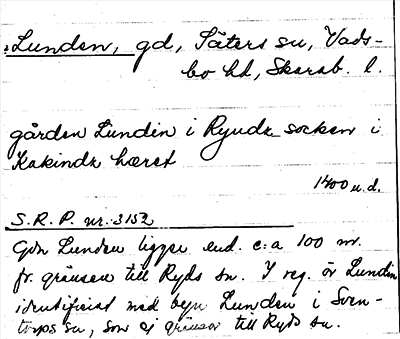 Lunden, gd, Säters sn, Vads-
bo hd, Skarab. l.
gården Lundin i Ryudz socken i
Kakindz hæret
1400 u.d.
S.R.P. nr. 3152
Gdn Lunden ligger end. c:a 100 m.
fr. gränsen till Ryds sn. I reg. är Lundin
identifierat med byn Lunden i Sven-
torps sn, som ej gränsar till Ryds sn.